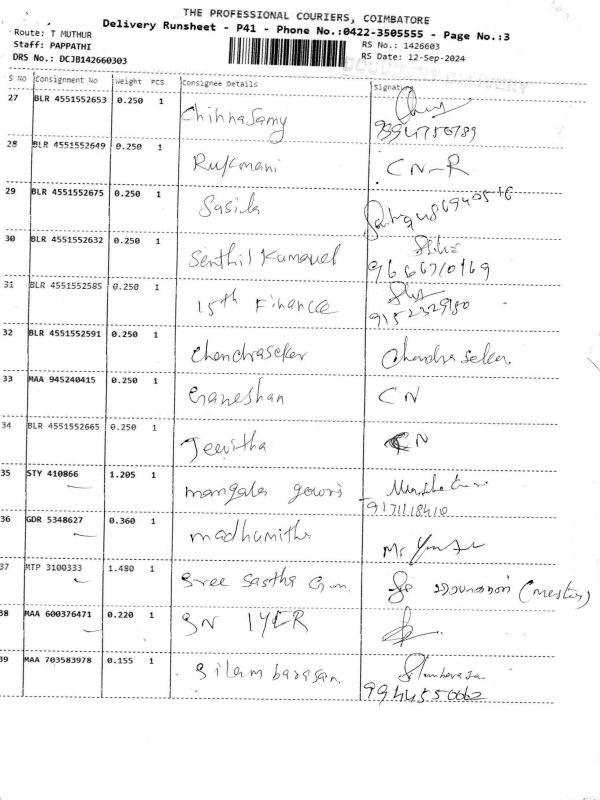 THE PROFESSIONAL COURIERS, COIMBATORE
Delivery Runsheet - P41 - Phone No.:0422-3505555 - Page No.:3
Route: T MUTHUR
RS No.: 1426603
Staff: PAPPATHI
RS Date: 12-Sep-2024
DRS No.: DCJB142660303
S NO Consignment No Weight PCS Consignee Details Signature
27 BLR 4551552653 0.250 1 Chinnasamy
28 BLR 4551552649 0.250 1 Rukmani CN-R
29 BLR 4551552675 0.250 1 Sasila
30 BLR 4551552632 0.250 1 Senthil Kumavel
31 BLR 4551552585 0.250 1 15th Finance
9152329180
32 BLR 4551552591 0.250 1 Chendraseker Chandra sekar.
33 MAA 945240415 0.250 1 Ganeshan CN
34 BLR 4551552665 0.250 1 Jeevitha CN
35 STY 410866 1.205 1 mangala gowri
9171118410
36 GDR 5348627 0.360 1 madhumitha
37 MTP 3100333 1.480 1 Sree Sastha
38 MAA 600376471 0.220 1 SN IYER
39 MAA 703583978 0.155 1 Silambarasan
9944550062